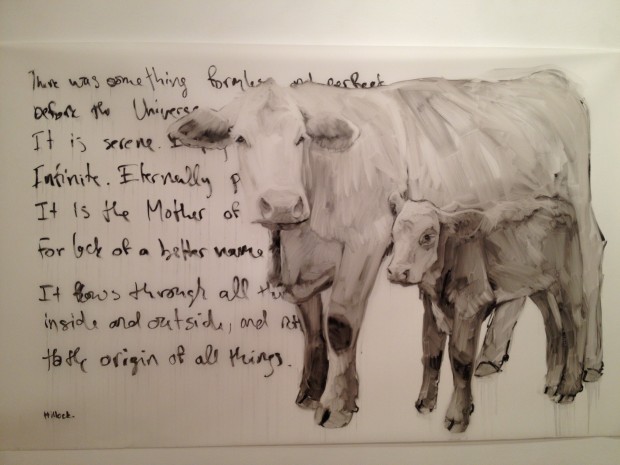 There was something formless and perfect
before the Universe
It is serene.
Infinite. Eternally p
It Is the Mother of
For lack of a better name
It flows through all thi
inside and outside, and
to the origin of all things.
Hillock.